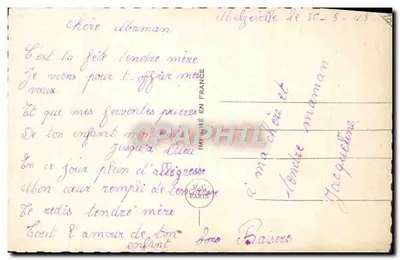 Malzeville le 30-5-48
Chère Maman
C'est ta fête tendre mère
Je viens pour t'offrir mes
vœux
Et que mes ferventes prières
De ton enfant
jusqu'à Dieu
En ce jour plein d'allégresse
Mon cœur rempli de tendresse
Te redis tendre mère
Tout l'amour de ton
enfant bons Baisers
à ma chère et
tendre maman
Jacqueline
IMPRIMÉ EN FRANCE
PARIS